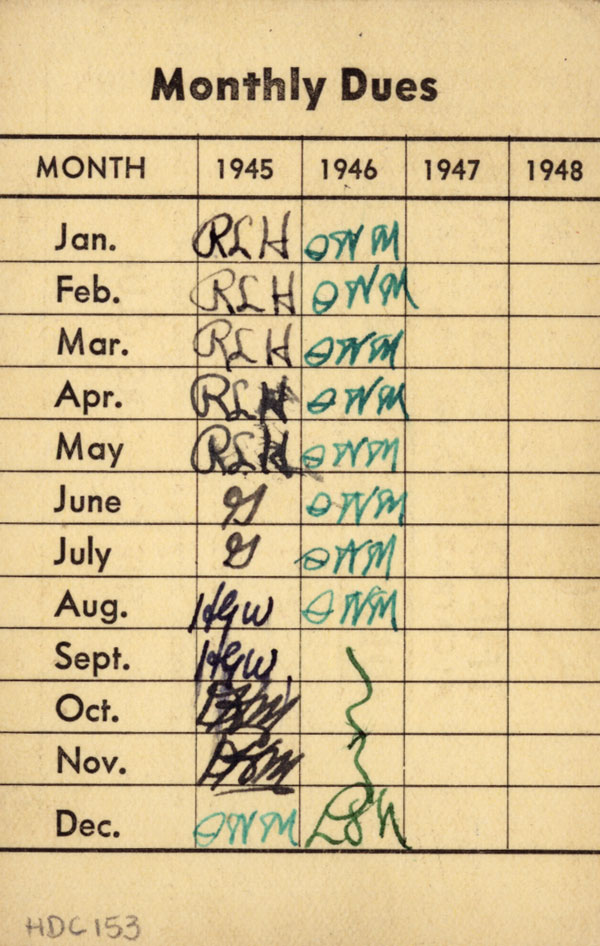 Monthly Dues
MONTH 1945 1946 1947 1948
Jan. RLH OWM
Feb. RLH OWM
Mar. RLH OWM
Apr. RLH OWM
May RLH OWM
June G OWM
July G OWM
Aug. HGW OWM
Sept. HGW
Oct.
Nov.
Dec. OWM
HDC153